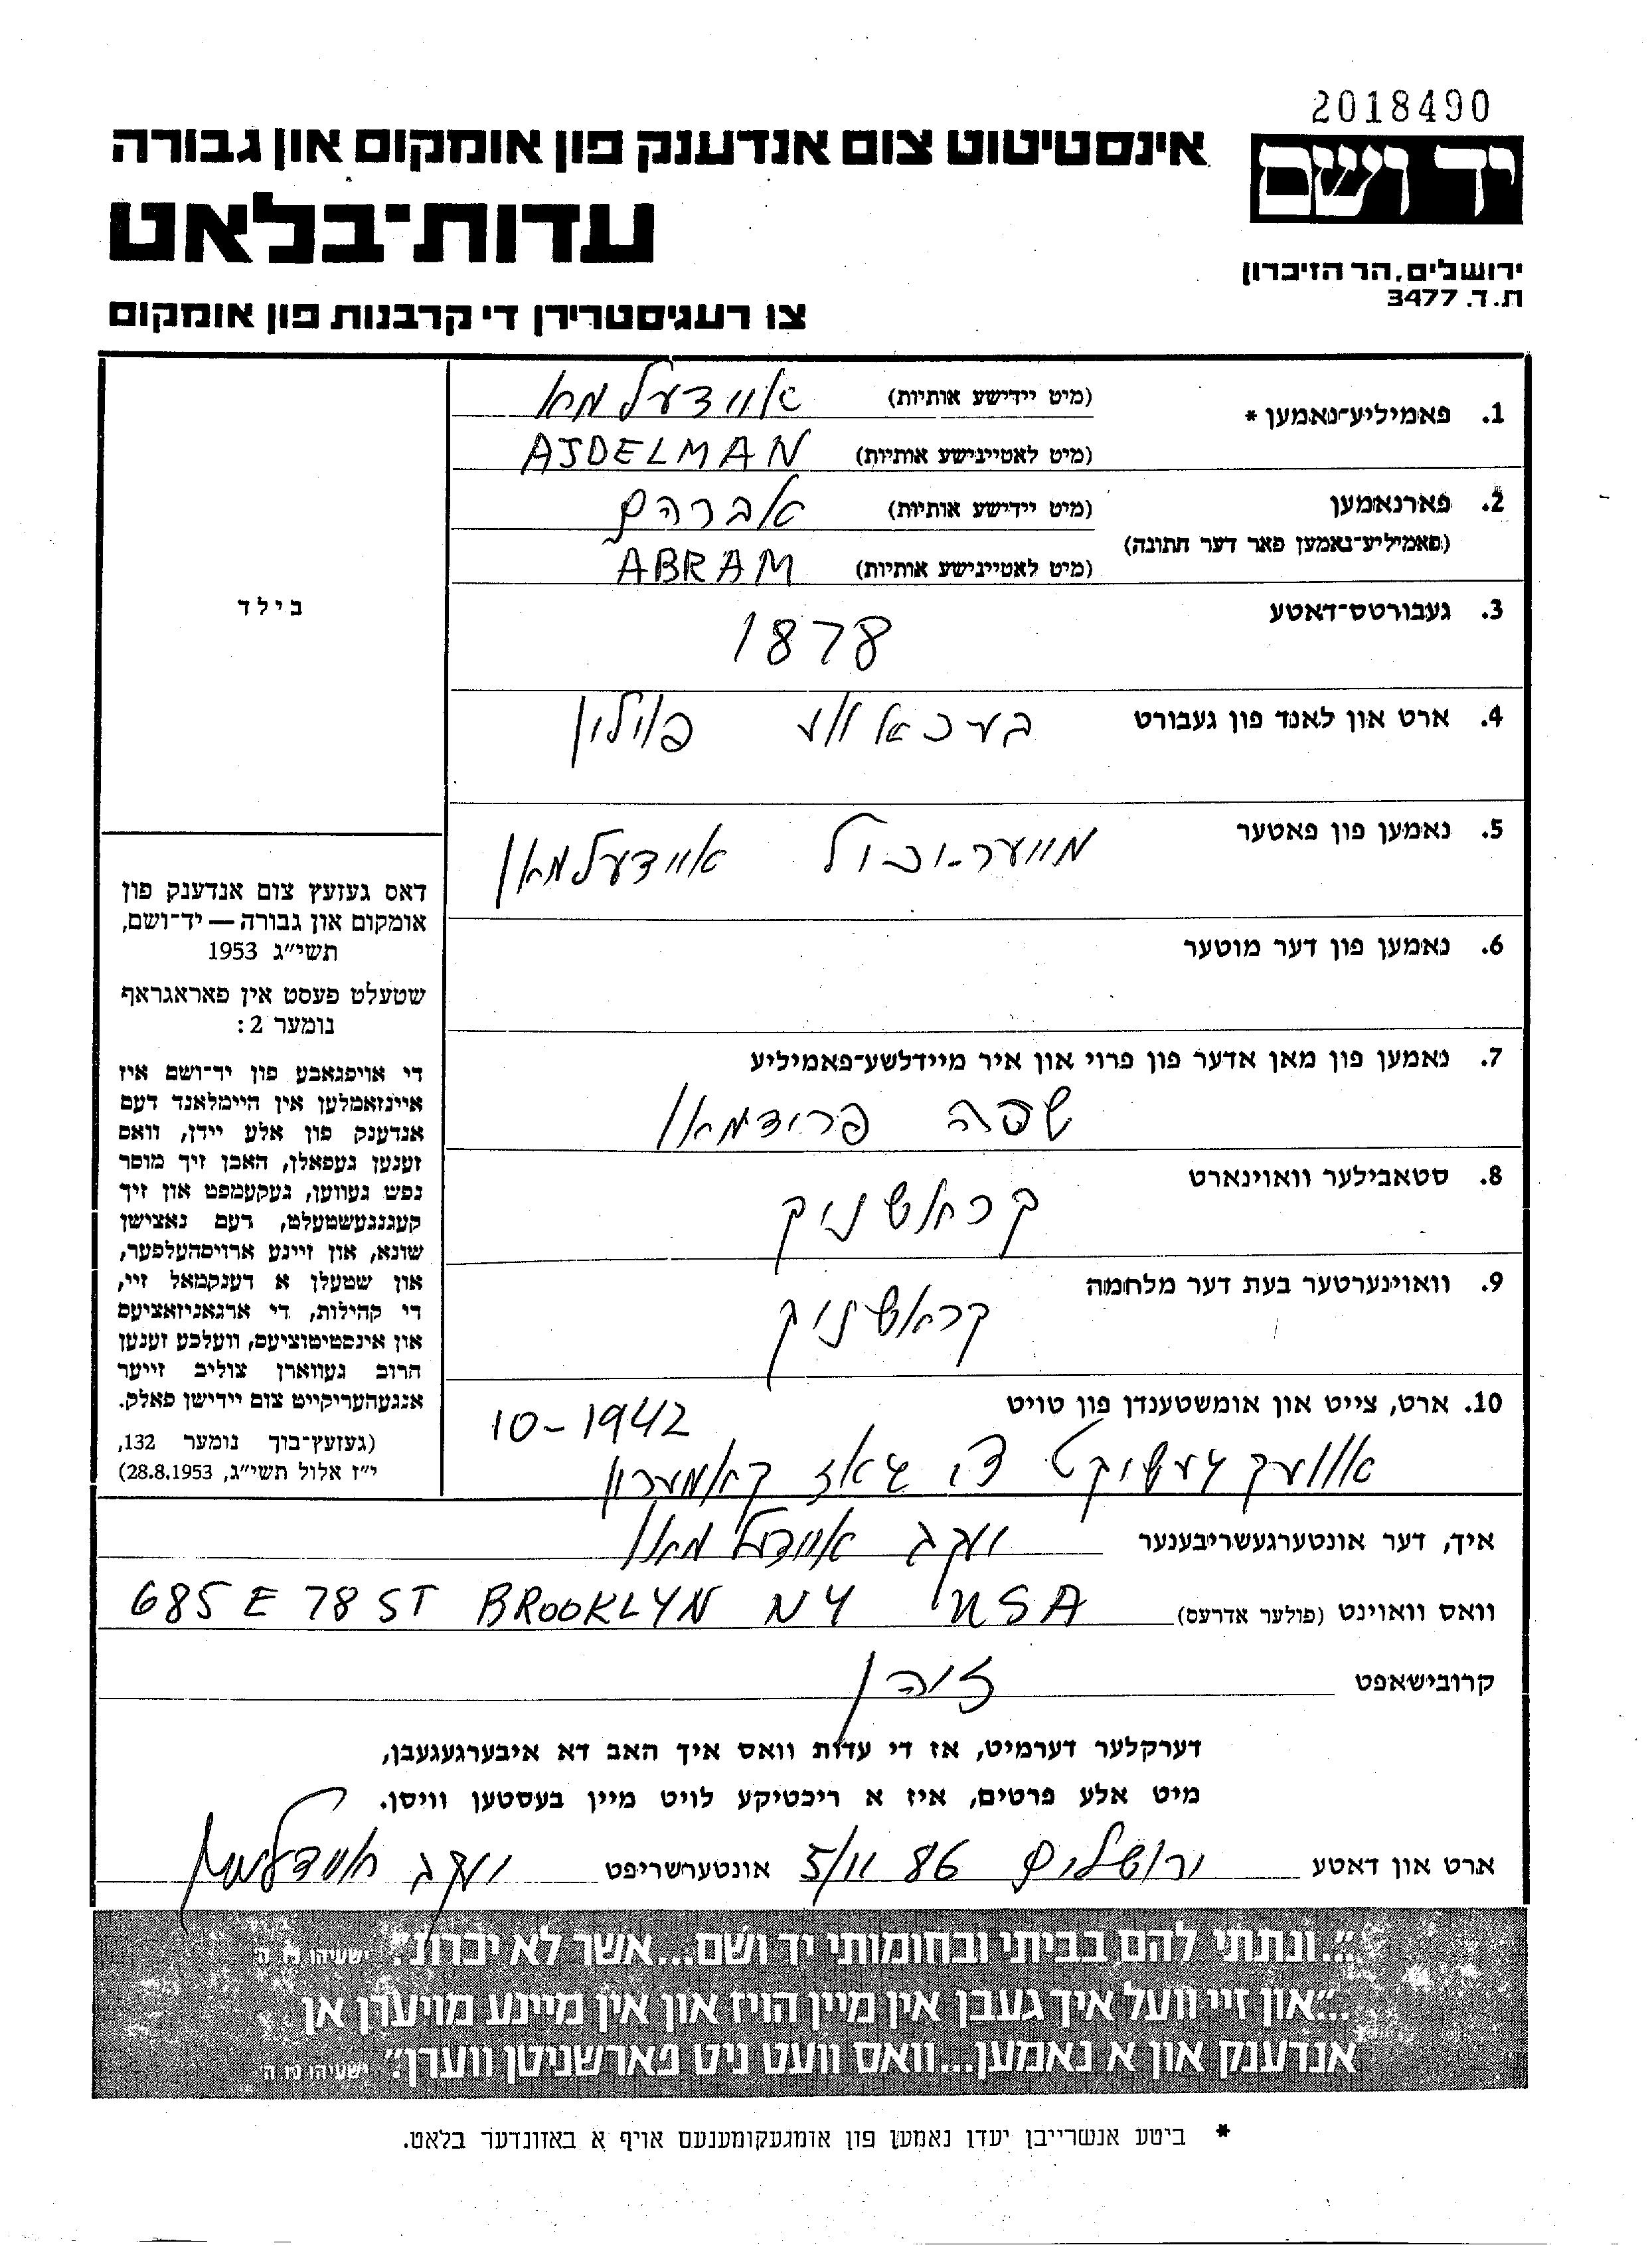 2018490
יד ושם
אינסטיטוט צום אנדענק פון אומקום און גבורה
עדות־בלאט
ירושלים, הר הזיכרון
ת.ד. 3477
צו רעגיסטרירן די קרבנות פון אומקום
1. פאמיליע־נאמען * (מיט יידישע אותיות) איידעלמאן
(מיט לאטיינישע אותיות) AJDELMAN
2. פארנאמען (מיט יידישע אותיות) אברהם
(פאמיליע־נאמען פאר דער חתונה)
(מיט לאטיינישע אותיות) ABRAM
3. געבורטס־דאטע 1878
בילד
4. ארט און לאנד פון געבורט פוילין
5. נאמען פון פאטער איידעלמאן
6. נאמען פון דער מוטער
7. נאמען פון מאן אדער פון פרוי און איר מיידלשע־פאמיליע
שפה פרידמאן
8. סטאבילער וואוינארט קראשניק
9. וואוינערטער בעת דער מלחמה קראשניק
10. ארט, צייט און אומשטענדן פון טויט 10-1942
אוועק געשיקט צו גאז קאמערון
דאס געזעץ צום אנדענק פון
אומקום און גבורה — יד־ושם,
תשי״ג 1953
שטעלט פעסט אין פאראגראף
נומער 2:
די אויפגאבע פון יד־ושם איז
איינזאמלען אין היימלאנד דעם
אנדענק פון אלע יידן, וואס
זענען געפאלן, האבן זיך מוסר
נפש געווען, געקעמפט און זיך
קעגנגעשטעלט, דעם נאצישן
שונא, און זיינע ארויסהעלפער,
און שטעלן א דענקמאל זיי,
די קהילות, די ארגאניזאציעס
און אינסטיטוציעס, וועלכע זענען
חרוב געווארן צוליב זייער
אנגעהעריקייט צום יידישן פאלק.
(געזעץ־בוך נומער 132,
י״ז אלול תשי״ג, 28.8.1953)
איך, דער אונטערגעשריבענער יעקב איידעלמאן
וואס וואוינט (פולער אדרעס) 685 E 78 ST BROOKLYN NY USA
קרובישאפט זוהן
דערקלער דערמיט, אז די עדות וואס איך האב דא איבערגעגעבן,
מיט אלע פרטים, איז א ריכטיקע לויט מיין בעסטען וויסן.
ארט און דאטע ירושלים 5/11 86 אונטערשריפט יעקב איידעלמאן
"...ונתתי להם בביתי ובחומותי יד ושם...אשר לא יכרת." ישעיהו נו ה
"...און זיי וועל איך געבן אין מיין הויז און אין מיינע מויערן אן
אנדענק און א נאמען...וואס וועט ניט פארשניטן ווערן." ישעיהו נו ה
* ביטע אנשרייבן יעדן נאמען פון אומגעקומענעם אויף א באזונדער בלאט.